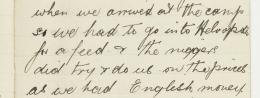 when we arrived at the camp
so we had to go into Heliopolis
for a feed & the niggers
did try & do us on the prices
as we had English money